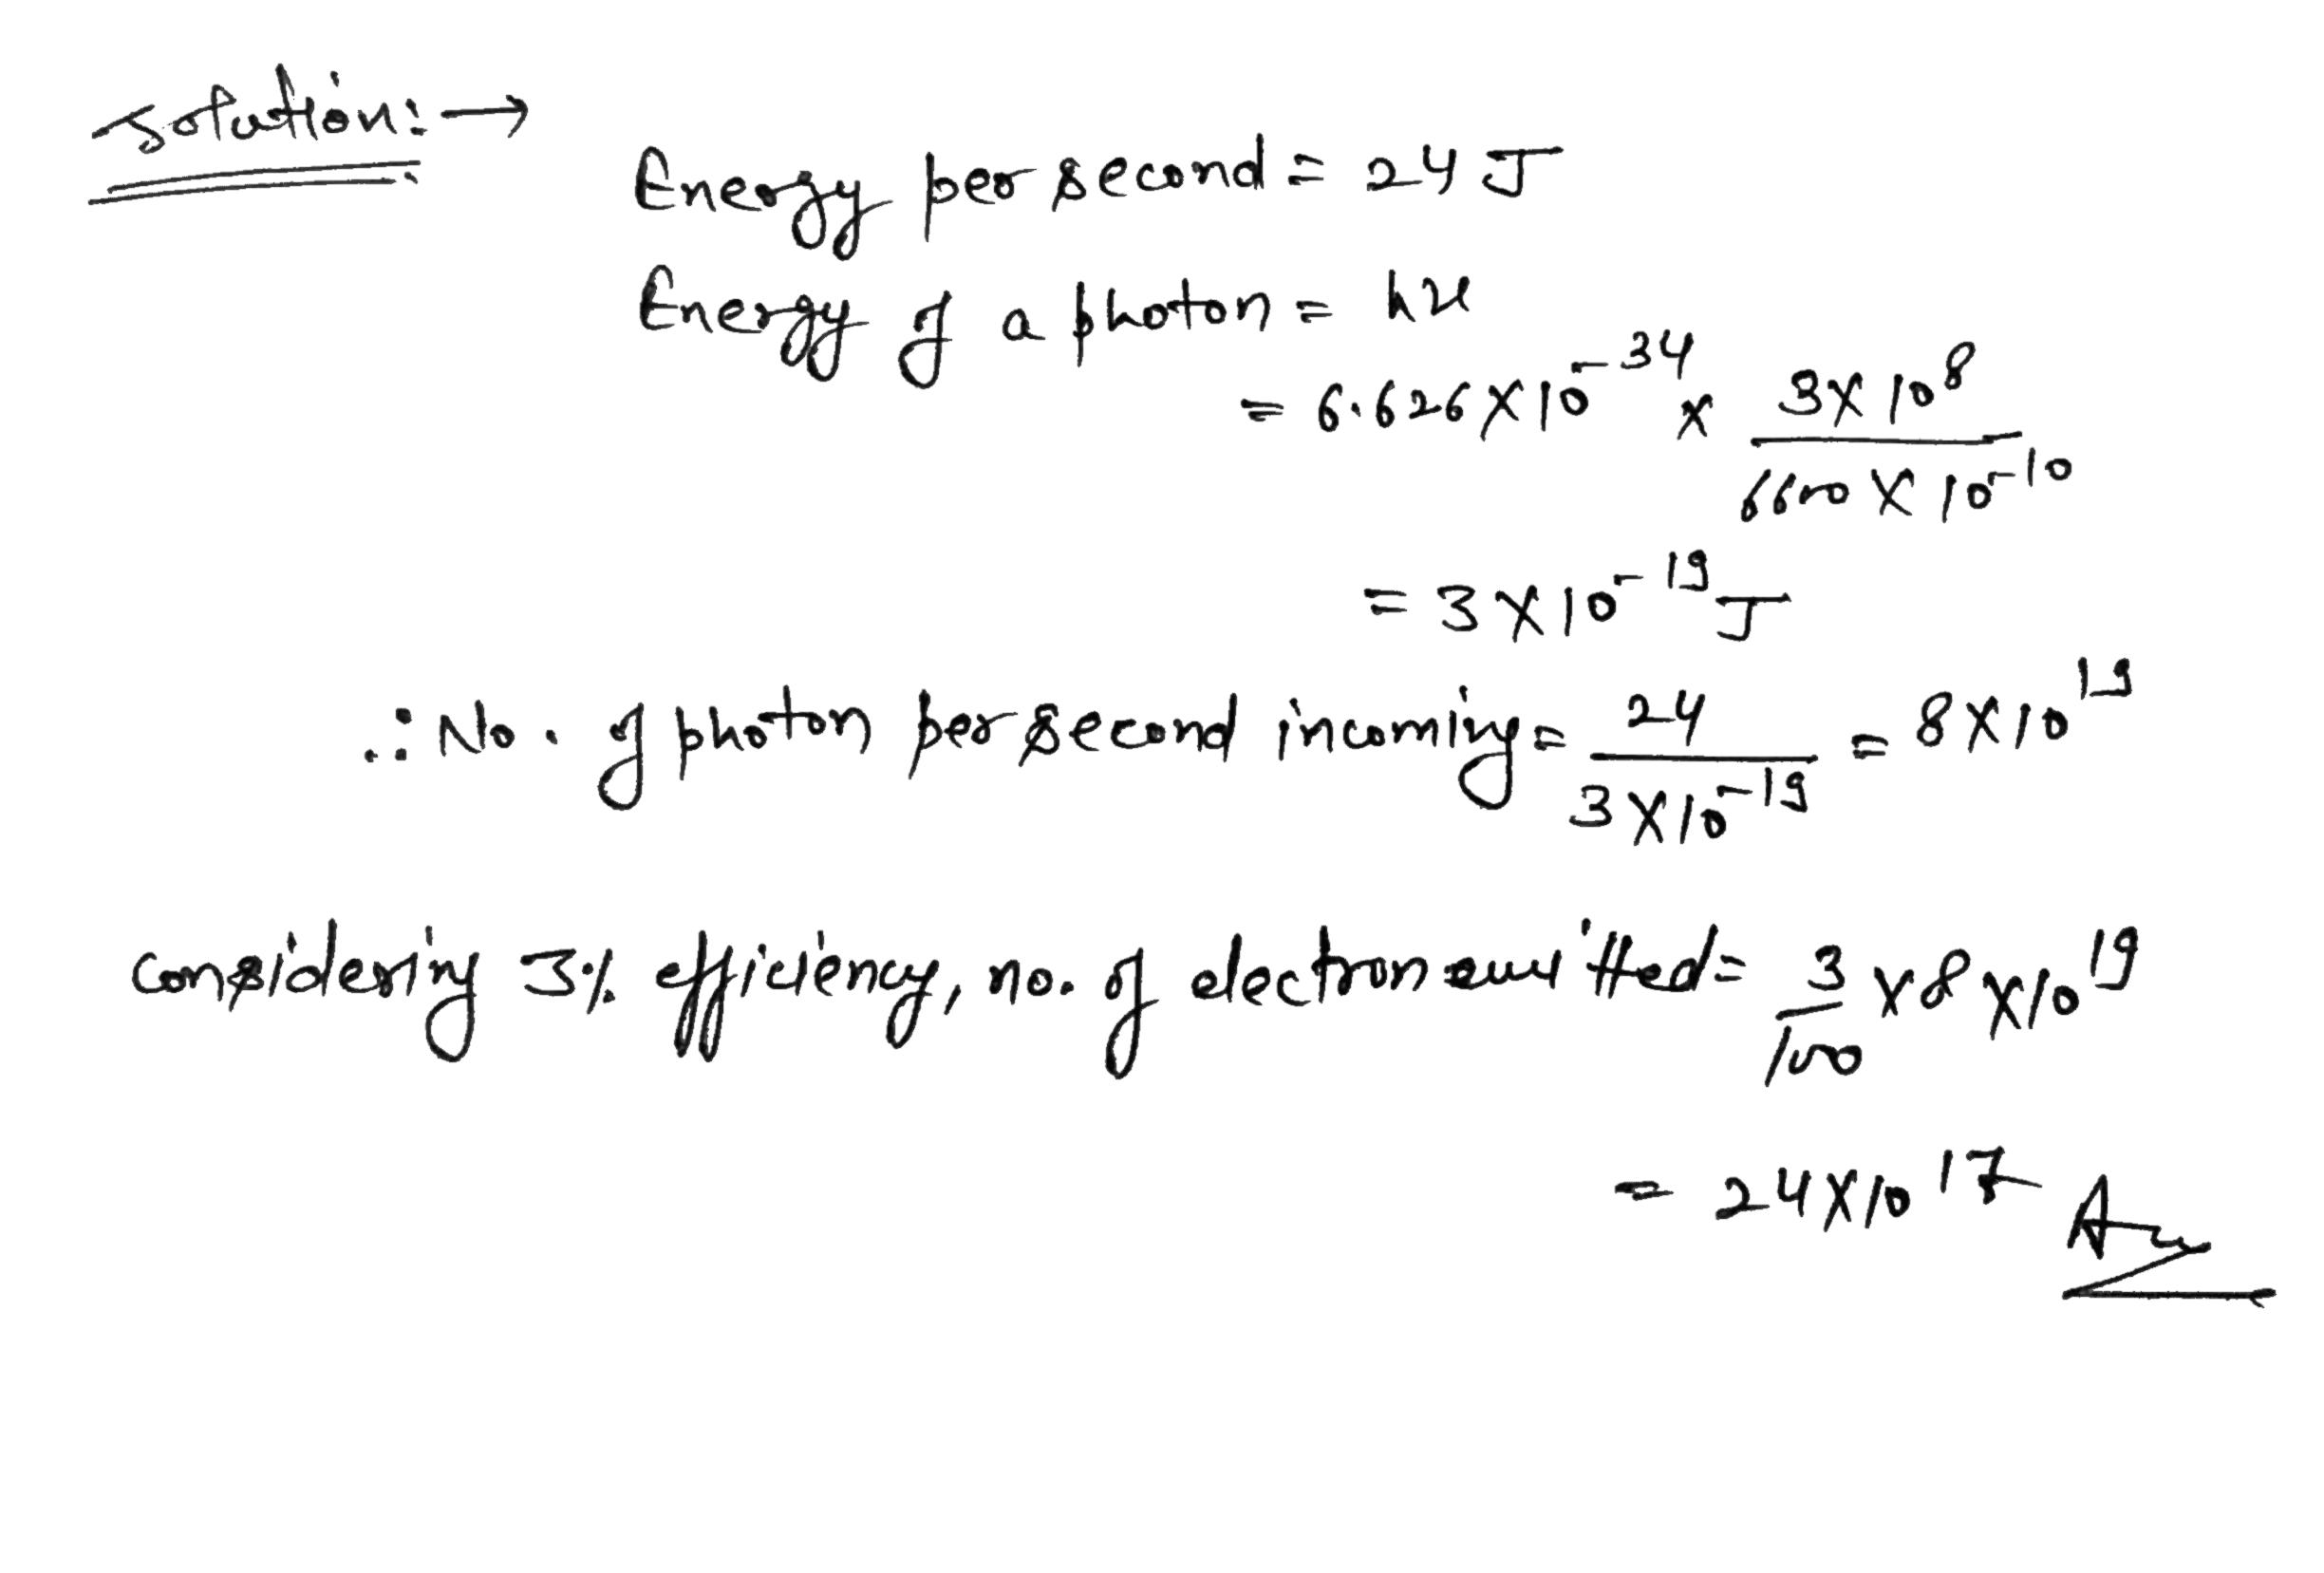 Solution:→
Energy per second = 24 J
Energy of a photon = hν
= 6.626 × 10⁻³⁴ × 3 × 10⁸ / 6600 × 10⁻¹⁰
= 3 × 10⁻¹⁹ J
∴ No. of photon per second incoming = 24 / 3 × 10⁻¹⁹ = 8 × 10¹⁹
considering 3% efficiency, no. of electron emitted = 3/100 × 8 × 10¹⁹
= 24 × 10¹⁷ Ans